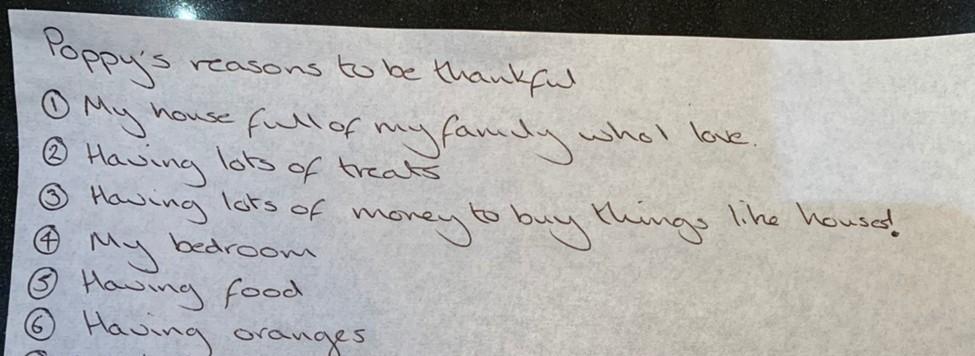 Poppy's reasons to be thankful
① My house full of my family who I love.
② Having lots of treats
③ Having lots of money to buy things like houses!
④ My bedroom
⑤ Having food
⑥ Having oranges